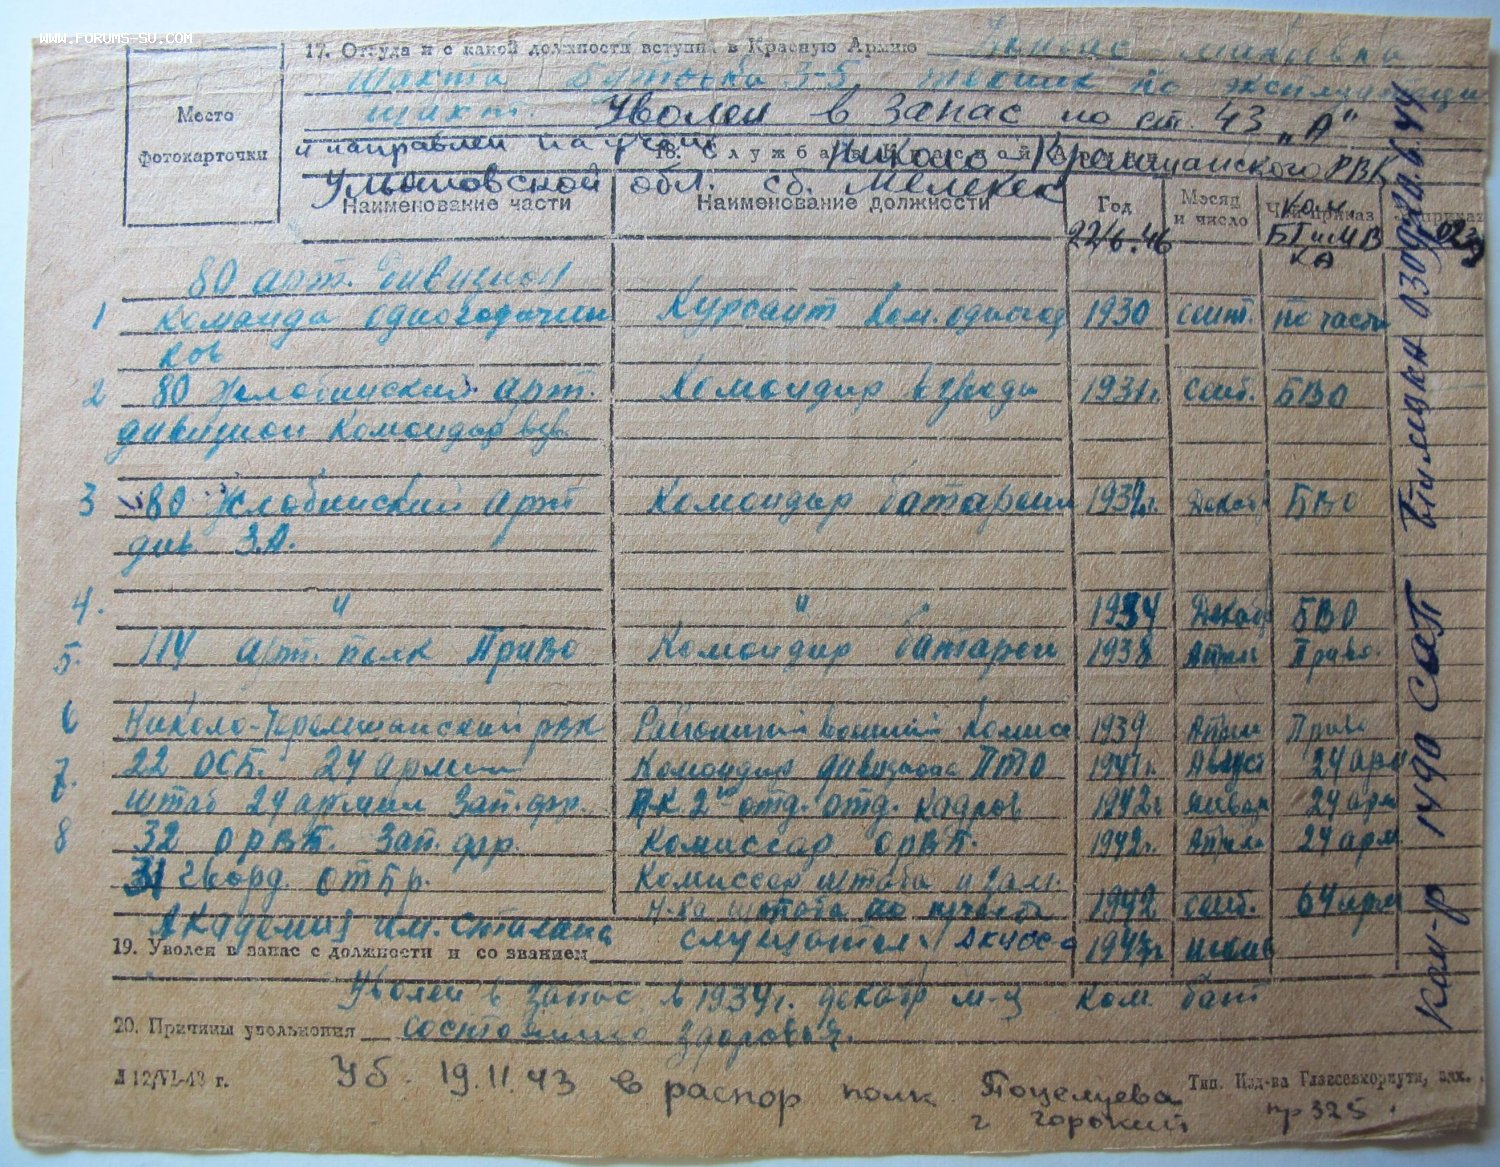 WWW.FORUMS-SU.COM
Место
фотокарточки
17. Откуда и с какой должности вступил в Красную Армию
шахта Бутовка 3-5 техник по эксплуатации
шахт. Уволен в запас по ст. 43 „А“
и направлен на учет Николо Кремшанского РВК
18. Служба в Красной Армии
Ульяновской обл. ст. Мелекес
Наименование части Наименование должности Год Месяц и число Чей приказ № приказа
22/6.46 БТ и МВ КА
80 арт. дивизион
1 команда одногодични Курсант ком. одногод 1930 сент. по части
ков
2 80 Жлобинский арт. Командир взвода 1931г. сент. БВО
дивизион командир взв.
3 80 Жлобинский арт Командир батареии 1932г. Декабр БВО
див. З.А.
4. " " 1934 Декабр БВО
5. 114 арт. полк Приво Командир батареи 1938 Апрель Приво.
6 Николо-Черемшанский рвк Районный военный комисс 1939 Апрель Приво
7. 22 ОСБ. 24 армии Командир дивизиона ПТО 1941г. Август 24 арм
штаб 24 армии Зап. фр. 2го отд. отд. кадров 1942г Январ 24 арм
8 32 ОРВБ. Зап. фр. Комиссар ОРВБ. 1942г. Апрель 24 арм
31 гвард. отбр. Комиссар штаба и зам.
н-ка штаба по 1942 сент. 64 арм
Академия им. Сталина слушатель 1943г
19. Уволен в запас с должности и со званием
Уволен в запас в 1934г. декабр м-ц ком. бат
20. Причины увольнения состоянию здоровья.
Л 12/VI-43 г.
Уб. 19.11.43 в распор полк Поцелуева
г Горький пр 325.
Тип. Изд-ва Главсевморпути, зак.
ком-р 1490 САП БТиМВ КА 0309/20.6.44